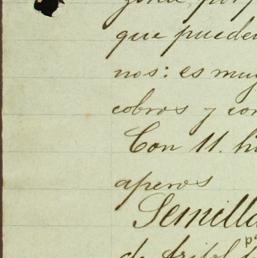 que pueden
nos: es muy
cobros y con
Con 11. hi
aperos
Semilla
de frijol